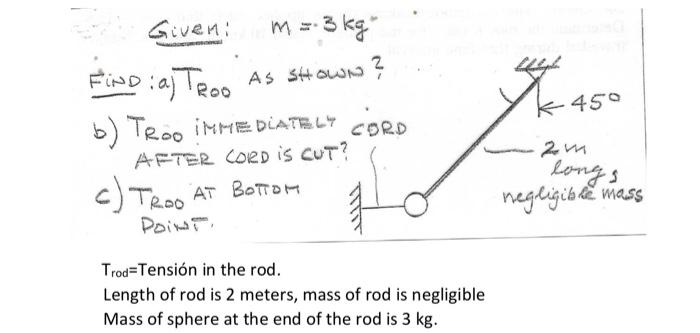 Given: m = 3 kg
FIND: a) TROD AS SHOWN?
45°
b) TROD IMMEDIATELY CORD
AFTER CORD IS CUT?
2m
long,
c) TROD AT BOTTOM
negligible mass
POINT.
Trod=Tensión in the rod.
Length of rod is 2 meters, mass of rod is negligible
Mass of sphere at the end of the rod is 3 kg.